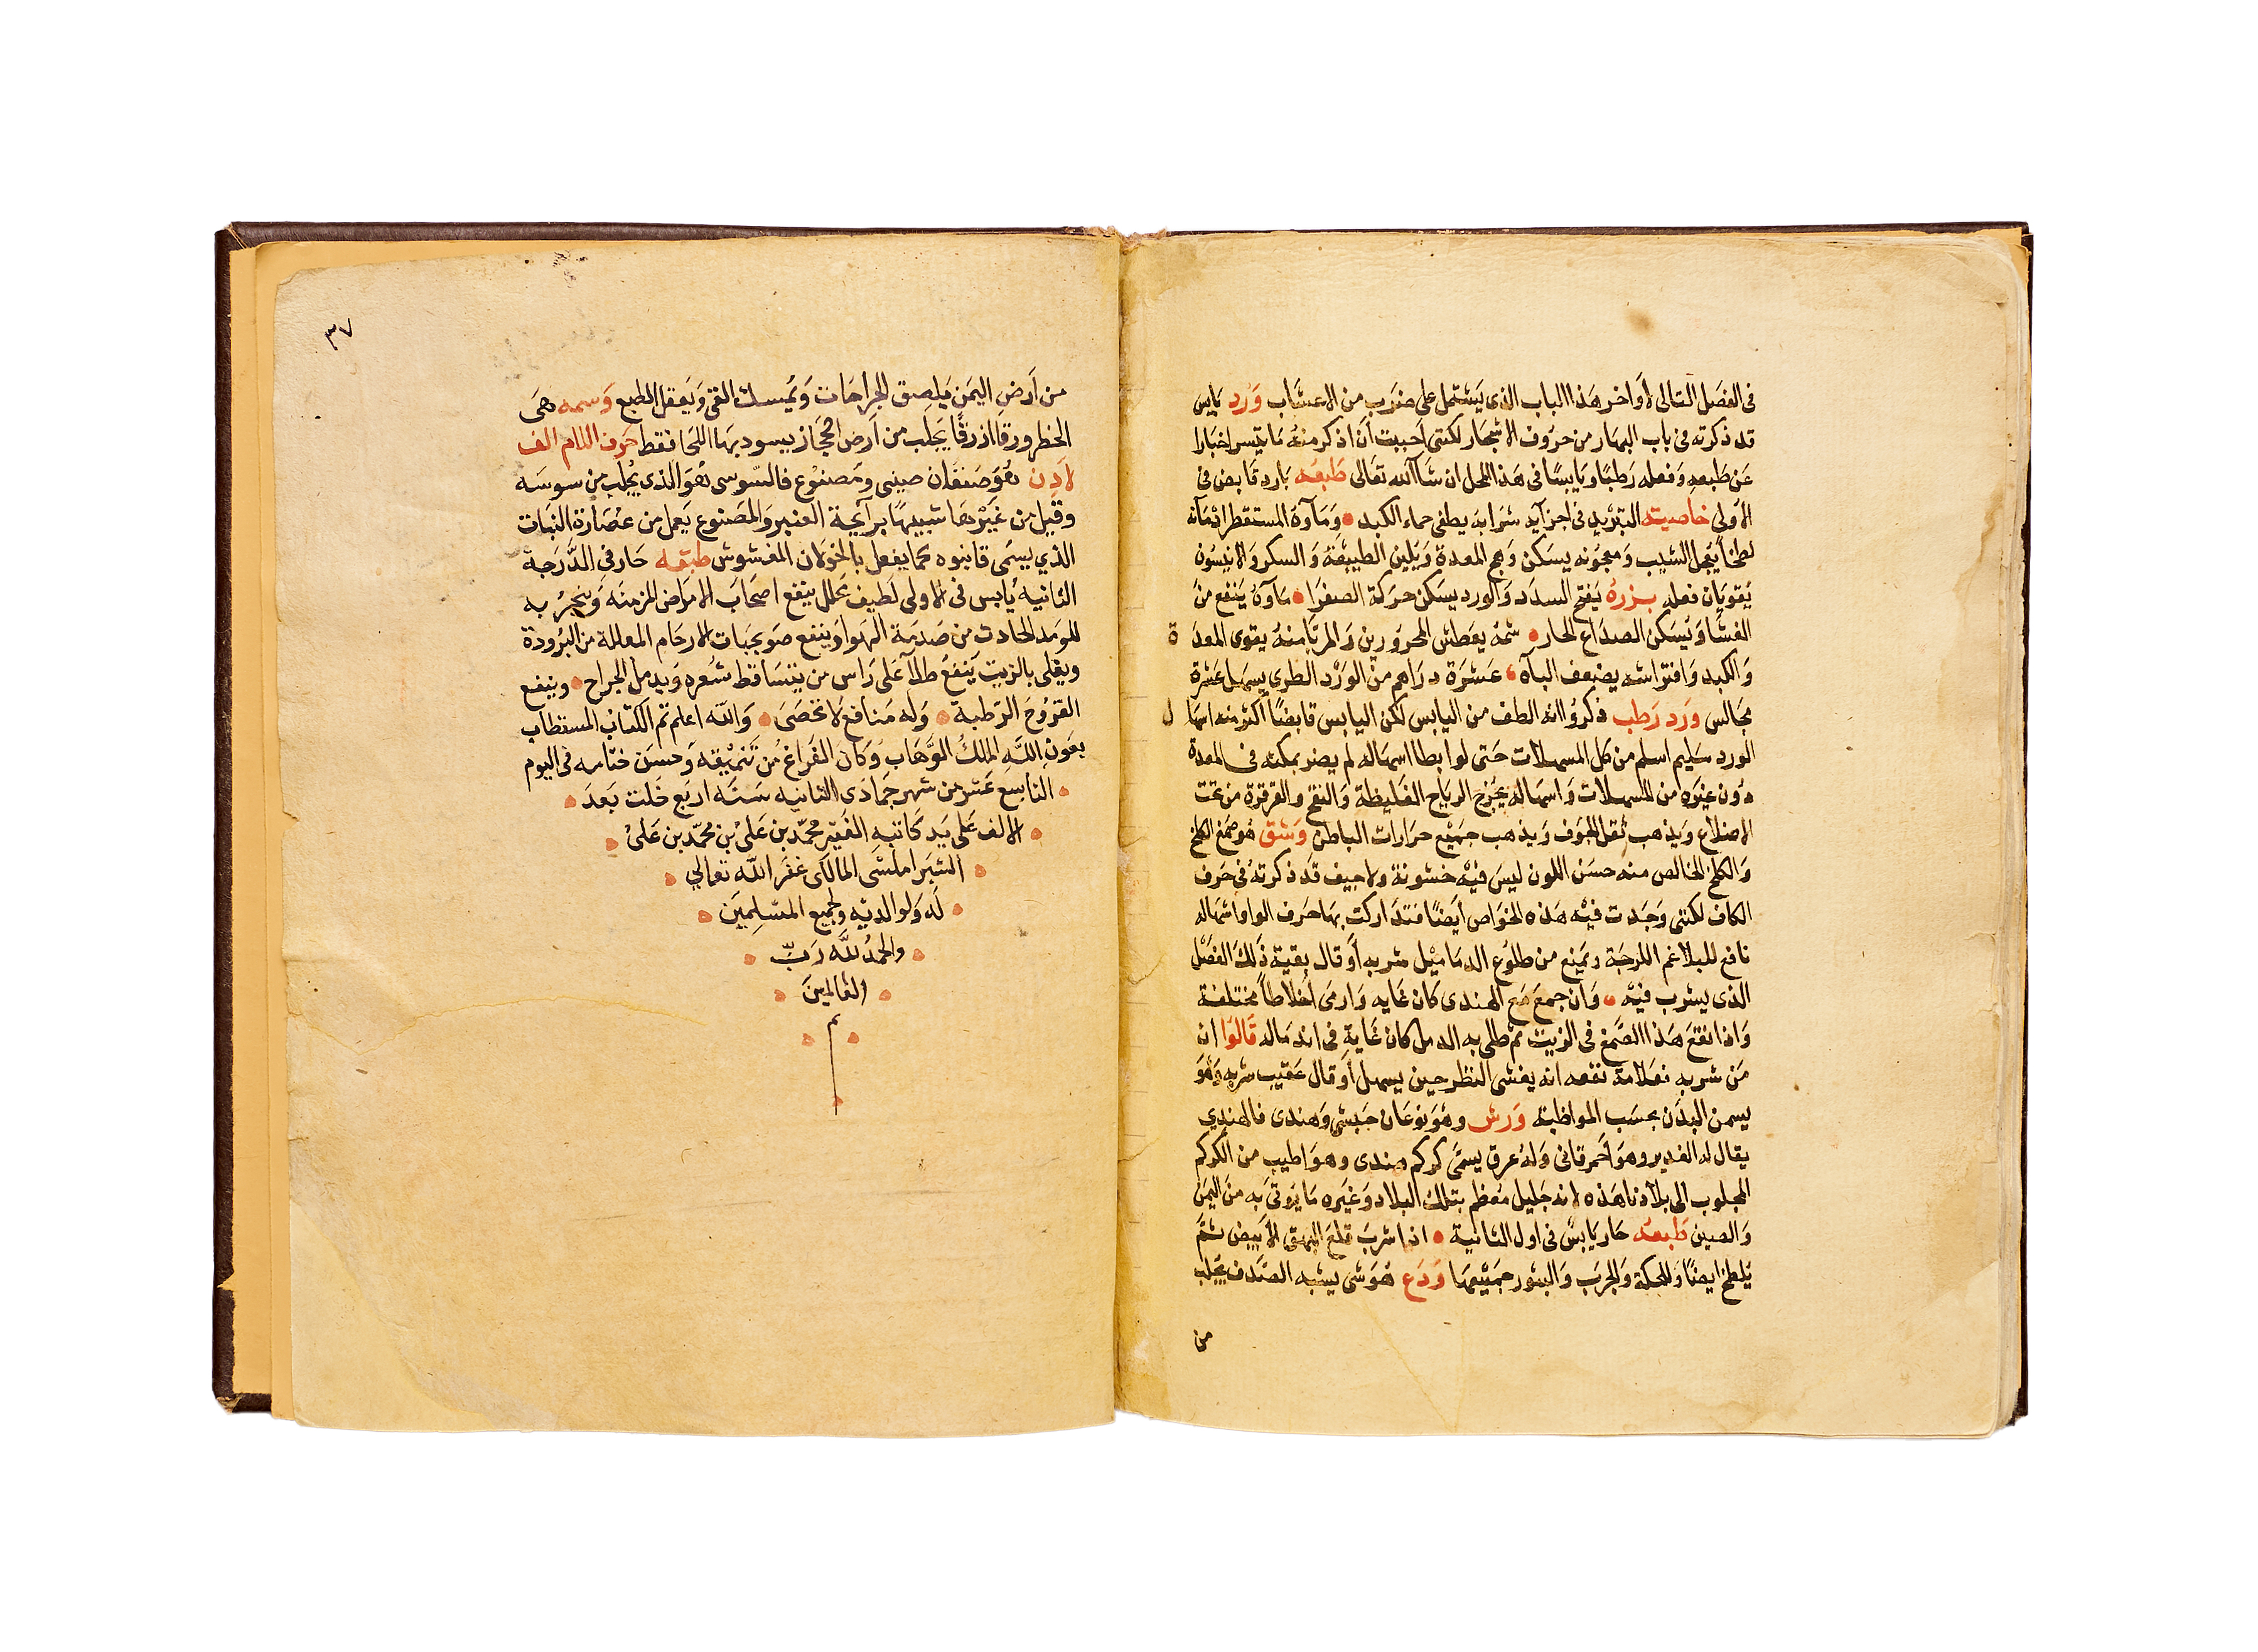 في الفصل التالى لأواخر هذا الباب الذى يشتمل على ضرب من الاعشاب ورد يابس
قد ذكرته في باب البهار من حروف الاشجار لكننى احببت أن اذكر منه ما يتيسر اخبارا
عن طبعه وفعله رطبا ويابسا في هذا المحل ان شاآلله تعالى طبعه بارد قابض في
الأولى خاصيته التبريد في اجزآيه شرابه يطفى حماء الكبد وماآوه المستقطر ادمانه
لطخا يعجل الشيب ومعجونه يسكن وجع المعدة ويلين الطبيعة والسكر والانيسون
يقويان فعله بزره يفتح السدد والورد يسكن حركة الصفرا مآوه ينفع من
الغشا ويسكن الصداع الحار شمه يعطش المحرورين والمربا منه يقوى المعدة
والكبد وافتراشه يضعف الباه عشرة دراهم من الورد الطرى يسهل عشرة
مجالس ورد رطب ذكروا انه الطف من اليابس لكن اليابس قابضا أكثر منه اسهال
الورد سليم اسلم من كل المسهلات حتى لو ابطا اسهاله لم يضر بمكثه في المعدة
دون غيره من المسهلات واسهاله يخرج الرياح الغليظة والنفخ والقرقرة من تحت
الاضلاع ويذهب ثقل الجوف ويذهب جميع حرارات الباطن وشق هو صمغ الكلخ
والكلخ الخالص منه حسن اللون ليس فيه خشونة ولا جيف قد ذكرته في حرف
الكاف لكننى وجدت فيه هذه الخواص أيضا فتداركت بها حرف الواو اسهاله
نافع للبلاغم اللزجة ويمنع من طلوع الدماميل شربه أو قال بقية ذلك الفصل
الذى يشرب فيه وان جمع مع الهندى كان غايه وارمى أخلاطا مختلفة
واذا نقع هذا الصمغ في الزيت ثم طلى به الدمل كان غاية في اندماله قالوا ان
من شربه فعلامة نفعه انه يغشى النظر حين يسهل أو قال عقيب شربه وهو
يسمن البدن بحسب المواظبة ورش وهو نوعان حبشى وهندى فالهندي
يقال له الغدير وهو أحمر قانى وله عرق يسمى كركم هندى وهو اطيب من الكركم
المجلوب الى بلادنا هذه لانه جليل معظم بتلك البلاد وغيره ما يوتى به من اليمن
والصين طبعه حار يابس في اول الثانية اذا شرب قلع البهق الأبيض ثم
يلطخ ايضا وللحكة والجرب والبثور جميعها ودع هو شى يشبه الصدف يجلب
من
٣٧
من أرض اليمن يلصق الجراحات ويمسك القى ويعقل الطبع وسمه هى
الخطر ورقا ازرقا يجلب من أرض الحجاز يسود بها اللحا فقط حرف اللام الف
لادن هو صنفان صينى ومصنوع فالسوسى هو الذى يجلب من سوسه
وقيل من غيرها شبيها برايحة العنبر والمصنوع يعمل من عصارة النبات
الذي يسمى قانبوه كما يفعل بالخولان المغشوش طبعه حار في الدرجة
الثانيه يابس في الاولى لطيف محلل ينفع اصحاب الامراض المزمنه ويبخر به
للرمد الحادث من صدمة الهوا وينفع ضربجبات الارحام المعللة من البرودة
ويغلى بالزيت ينفع طلآ على راس من يتساقط شعره ويدمل الجراح وينفع
القروح الرطبة وله منافع لا تحصى والله اعلم تم الكتاب المستطاب
بعون الله الملك الوهاب وكان الفراغ من تنميقه وحسن ختامه في اليوم
التاسع عشر من شهر جمادى الثانيه سنة اربع خلت بعد
الالف على يد كاتبه الفقير محمد بن على بن محمد بن على
الشبراملسى المالكى غفر الله تعالي
له ولوالديه ولجميع المسلمين
والحمد لله رب
العالمين
تم